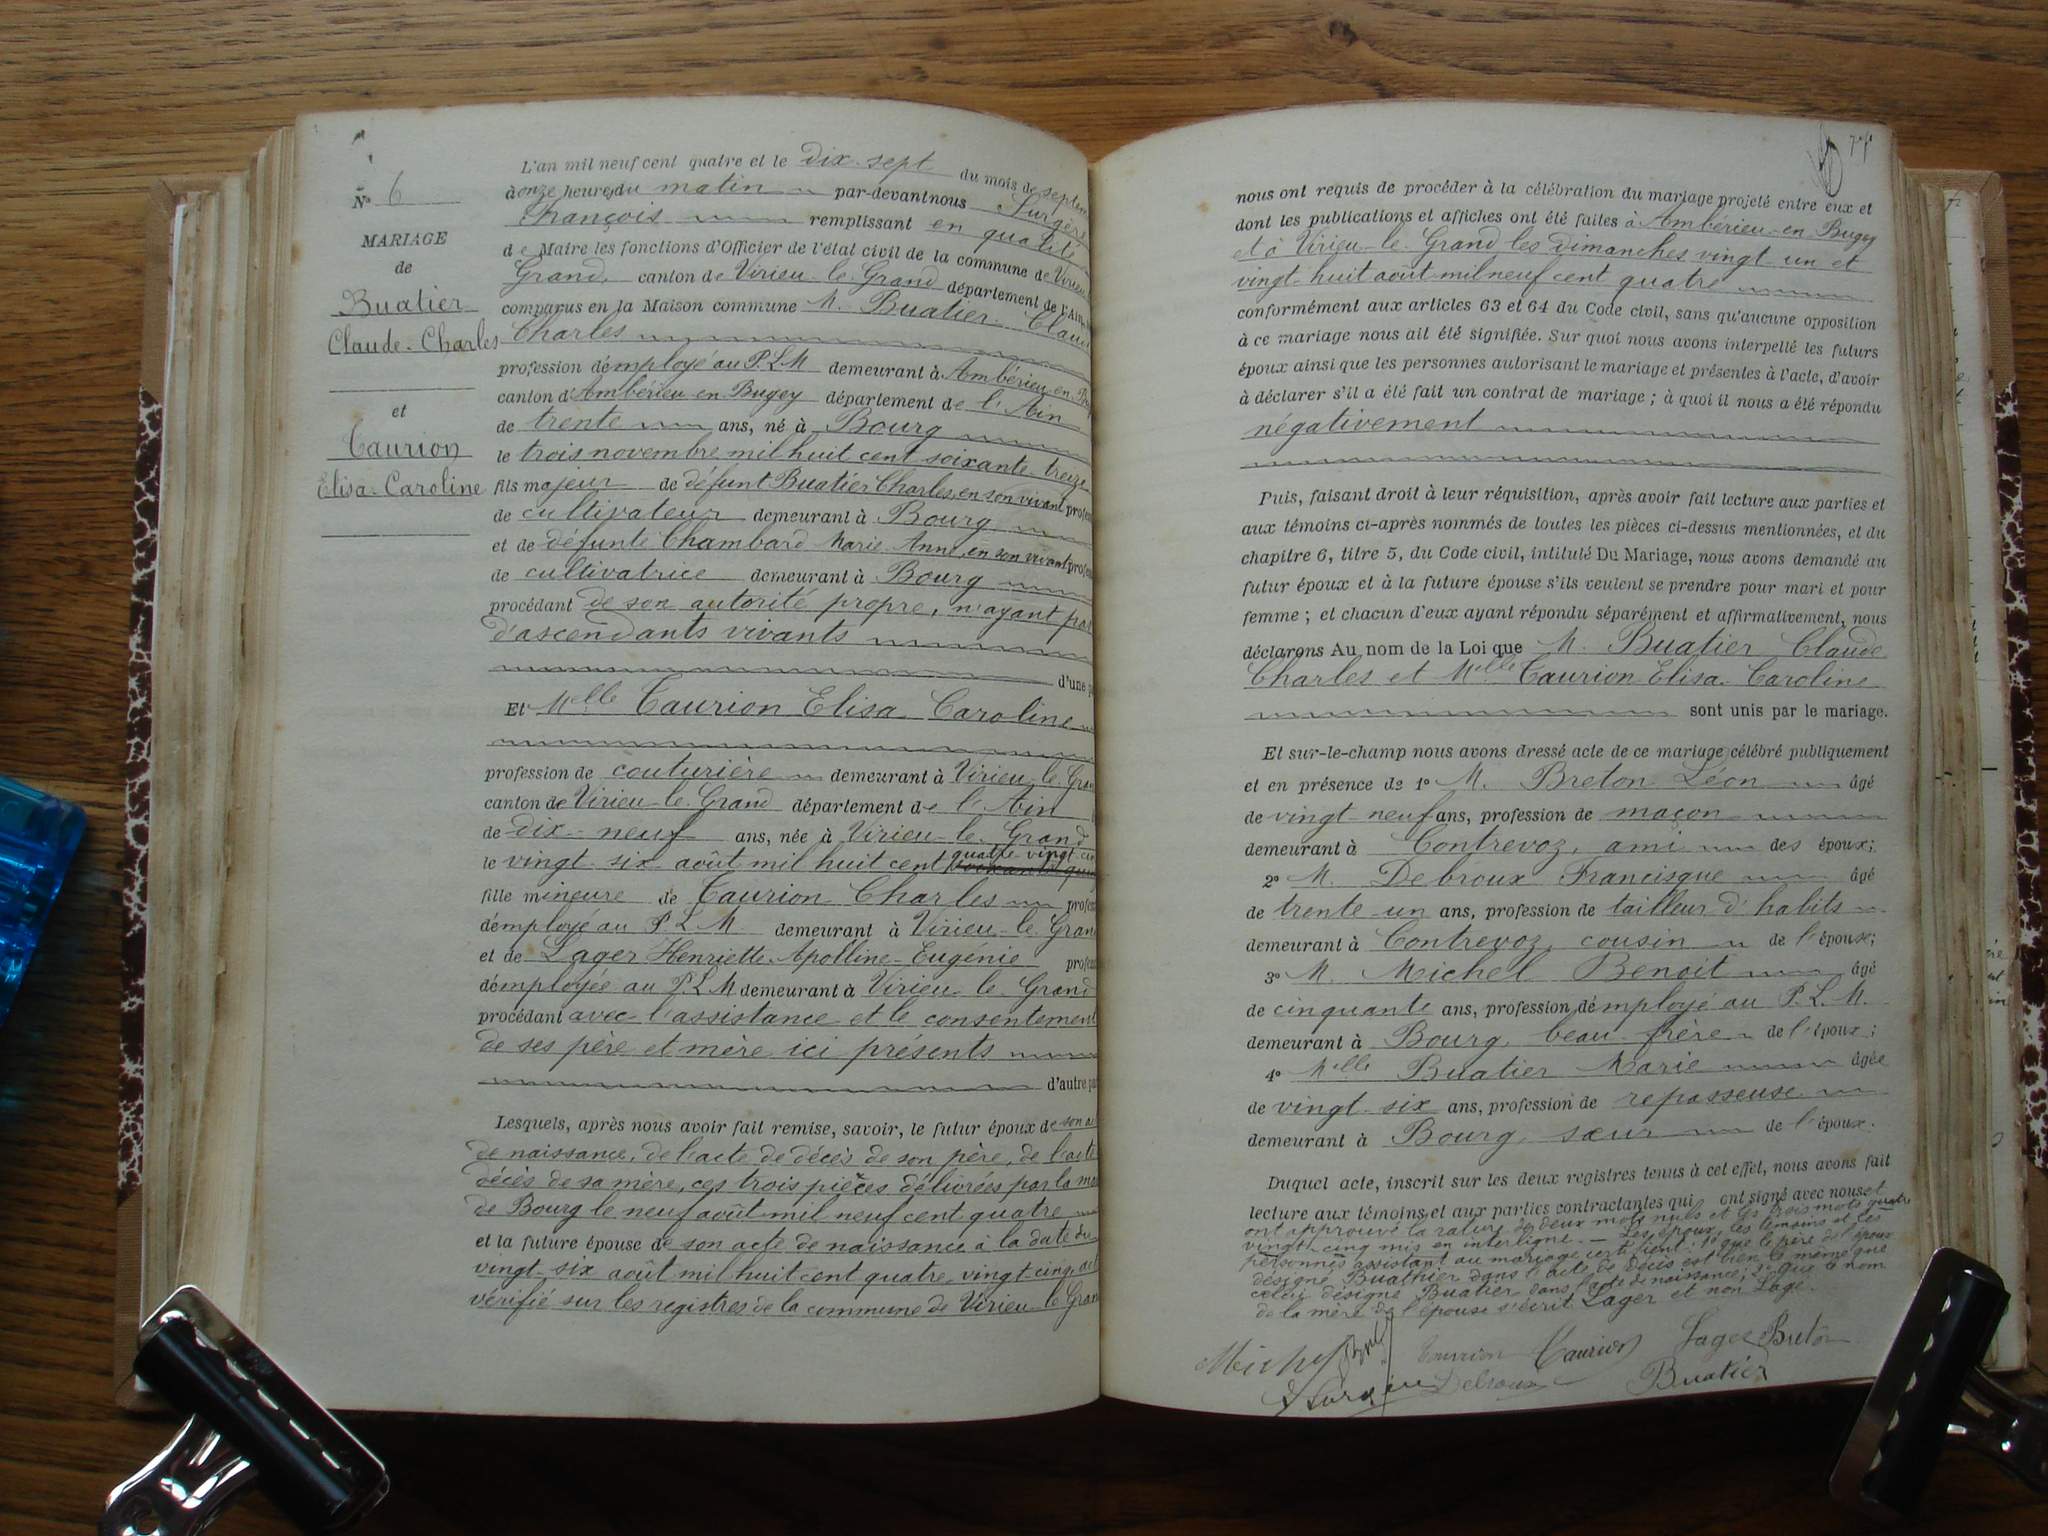 No 6
MARIAGE
de
Buatier
Claude-Charles
et
Taurion
Elisa-Caroline
L'an mil neuf cent quatre et le dix-sept du mois de septem
à onze heures du matin par-devant nous Surgère
François remplissant en qualité
de Maire les fonctions d'Officier de l'état civil de la commune de Virieu
Grand, canton de Virieu-le-Grand département de l'Ain
comparus en la Maison commune M. Buatier Claude
Charles
profession d'employé au P.L.M demeurant à Ambérieu en Bug
canton d'Ambérieu en Bugey département de l'Ain
de trente ans, né à Bourg
le trois novembre mil huit cent soixante treize
fils majeur de défunt Buatier Charles, en son vivant profes
de cultivateur demeurant à Bourg
et de défunte Chambard Marie Anne, en son vivant profes
de cultivatrice demeurant à Bourg
procédant de son autorité propre, n'ayant pas
d'ascendants vivants
d'une pa
Et Melle Taurion Elisa Caroline
profession de couturière demeurant à Virieu-le-Gran
canton de Virieu-le-Grand département de l'Ain
de dix-neuf ans, née à Virieu-le-Grand
le vingt-six août mil huit cent quatre-vingt-cin
fille mineure de Taurion Charles profes
d'employé au P.L.M demeurant à Virieu-le-Gran
et de Lager Henriette Apolline-Eugénie profes
d'employée au P.L.M demeurant à Virieu-le-Grand
procédant avec l'assistance et le consentement
de ses père et mère ici présents
d'autre pa
Lesquels, après nous avoir fait remise, savoir, le futur époux de son ac
de naissance, de l'acte de décès de son père, de l'acte
décès de sa mère, ces trois pièces délivrées par la mai
de Bourg le neuf août mil neuf cent quatre
et la future épouse de son acte de naissance à la date du
vingt-six août mil huit cent quatre-vingt-cinq, act
vérifié sur les registres de la commune de Virieu-le-Gran
77
nous ont requis de procéder à la célébration du mariage projeté entre eux et
dont les publications et affiches ont été faites à Ambérieu-en-Bugey
et à Virieu-le-Grand les dimanches vingt-un et
vingt-huit août mil neuf cent quatre
conformément aux articles 63 et 64 du Code civil, sans qu'aucune opposition
à ce mariage nous ait été signifiée. Sur quoi nous avons interpellé les futurs
époux ainsi que les personnes autorisant le mariage et présentes à l'acte, d'avoir
à déclarer s'il a été fait un contrat de mariage ; à quoi il nous a été répondu
négativement
Puis, faisant droit à leur réquisition, après avoir fait lecture aux parties et
aux témoins ci-après nommés de toutes les pièces ci-dessus mentionnées, et du
chapitre 6, titre 5, du Code civil, intitulé Du Mariage, nous avons demandé au
futur époux et à la future épouse s'ils veulent se prendre pour mari et pour
femme ; et chacun d'eux ayant répondu séparément et affirmativement, nous
déclarons Au nom de la Loi que M. Buatier Claude
Charles et Melle Taurion Elisa-Caroline
sont unis par le mariage.
Et sur-le-champ nous avons dressé acte de ce mariage célébré publiquement
et en présence de 1o M. Breton Léon âgé
de vingt-neuf ans, profession de maçon
demeurant à Contrevoz, ami des époux;
2o M. Debroux Francisque âgé
de trente-un ans, profession de tailleur d'habits
demeurant à Contrevoz, cousin de l'épouse;
3o M. Michel Benoit âgé
de cinquante ans, profession d'employé au P.L.M.
demeurant à Bourg, beau-frère de l'époux;
4o Melle Buatier Marie âgée
de vingt-six ans, profession de repasseuse
demeurant à Bourg, sœur de l'époux.
Duquel acte, inscrit sur les deux registres tenus à cet effet, nous avons fait
lecture aux témoins et aux parties contractantes qui ont signé avec nous et
ont approuvé la rature de deux mots nuls et les trois mots quatre
vingt-cinq mis en interligne. — Les époux, les témoins et les
personnes assistant au mariage certifient : 1o que le père de l'époux
désigné Buathier dans l'acte de décès est bien le même que
celui désigné Buatier dans l'acte de naissance; 2o que le nom
de la mère de l'épouse s'écrit Lager et non Lage.
Michel Taurion Taurion Lager Breton
Surgère Debroux Buatier